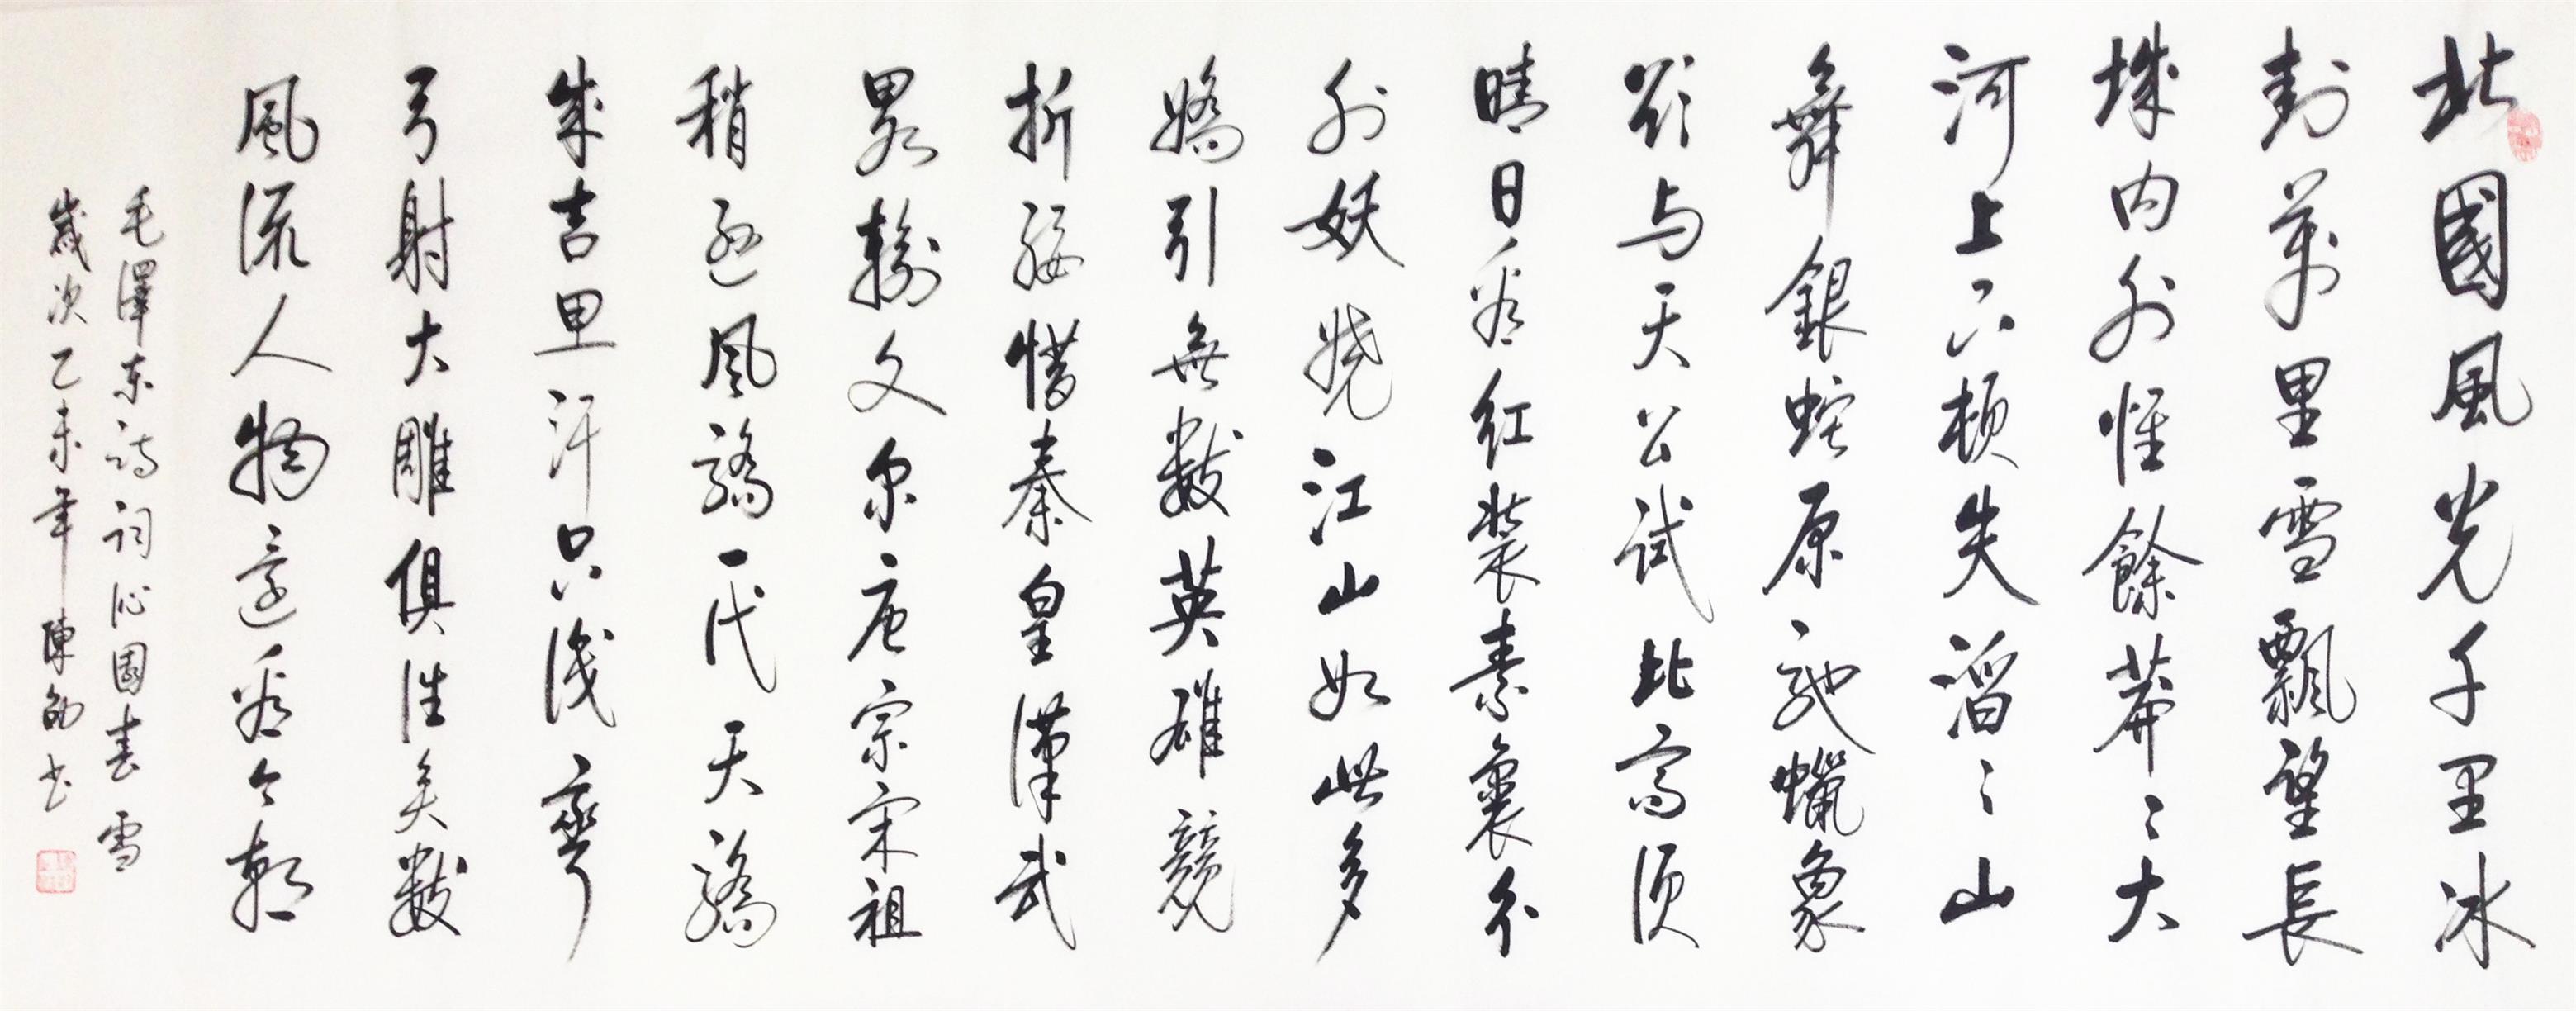 北國風光千里冰
封萬里雪飄望長
城内外惟餘莽々大
河上下頓失滔々山
舞銀蛇原馳蠟象
欲与天公試比高須
晴日看红装素裹分
外妖娆江山如此多
嬌引無數英雄競
折腰惜秦皇漢武
略輸文采唐宗宋祖
稍逊風騷一代天驕
成吉思汗只識彎
弓射大雕俱往矣數
風流人物還看今朝
毛澤东诗词沁園春雪
歲次乙未年 陳 书